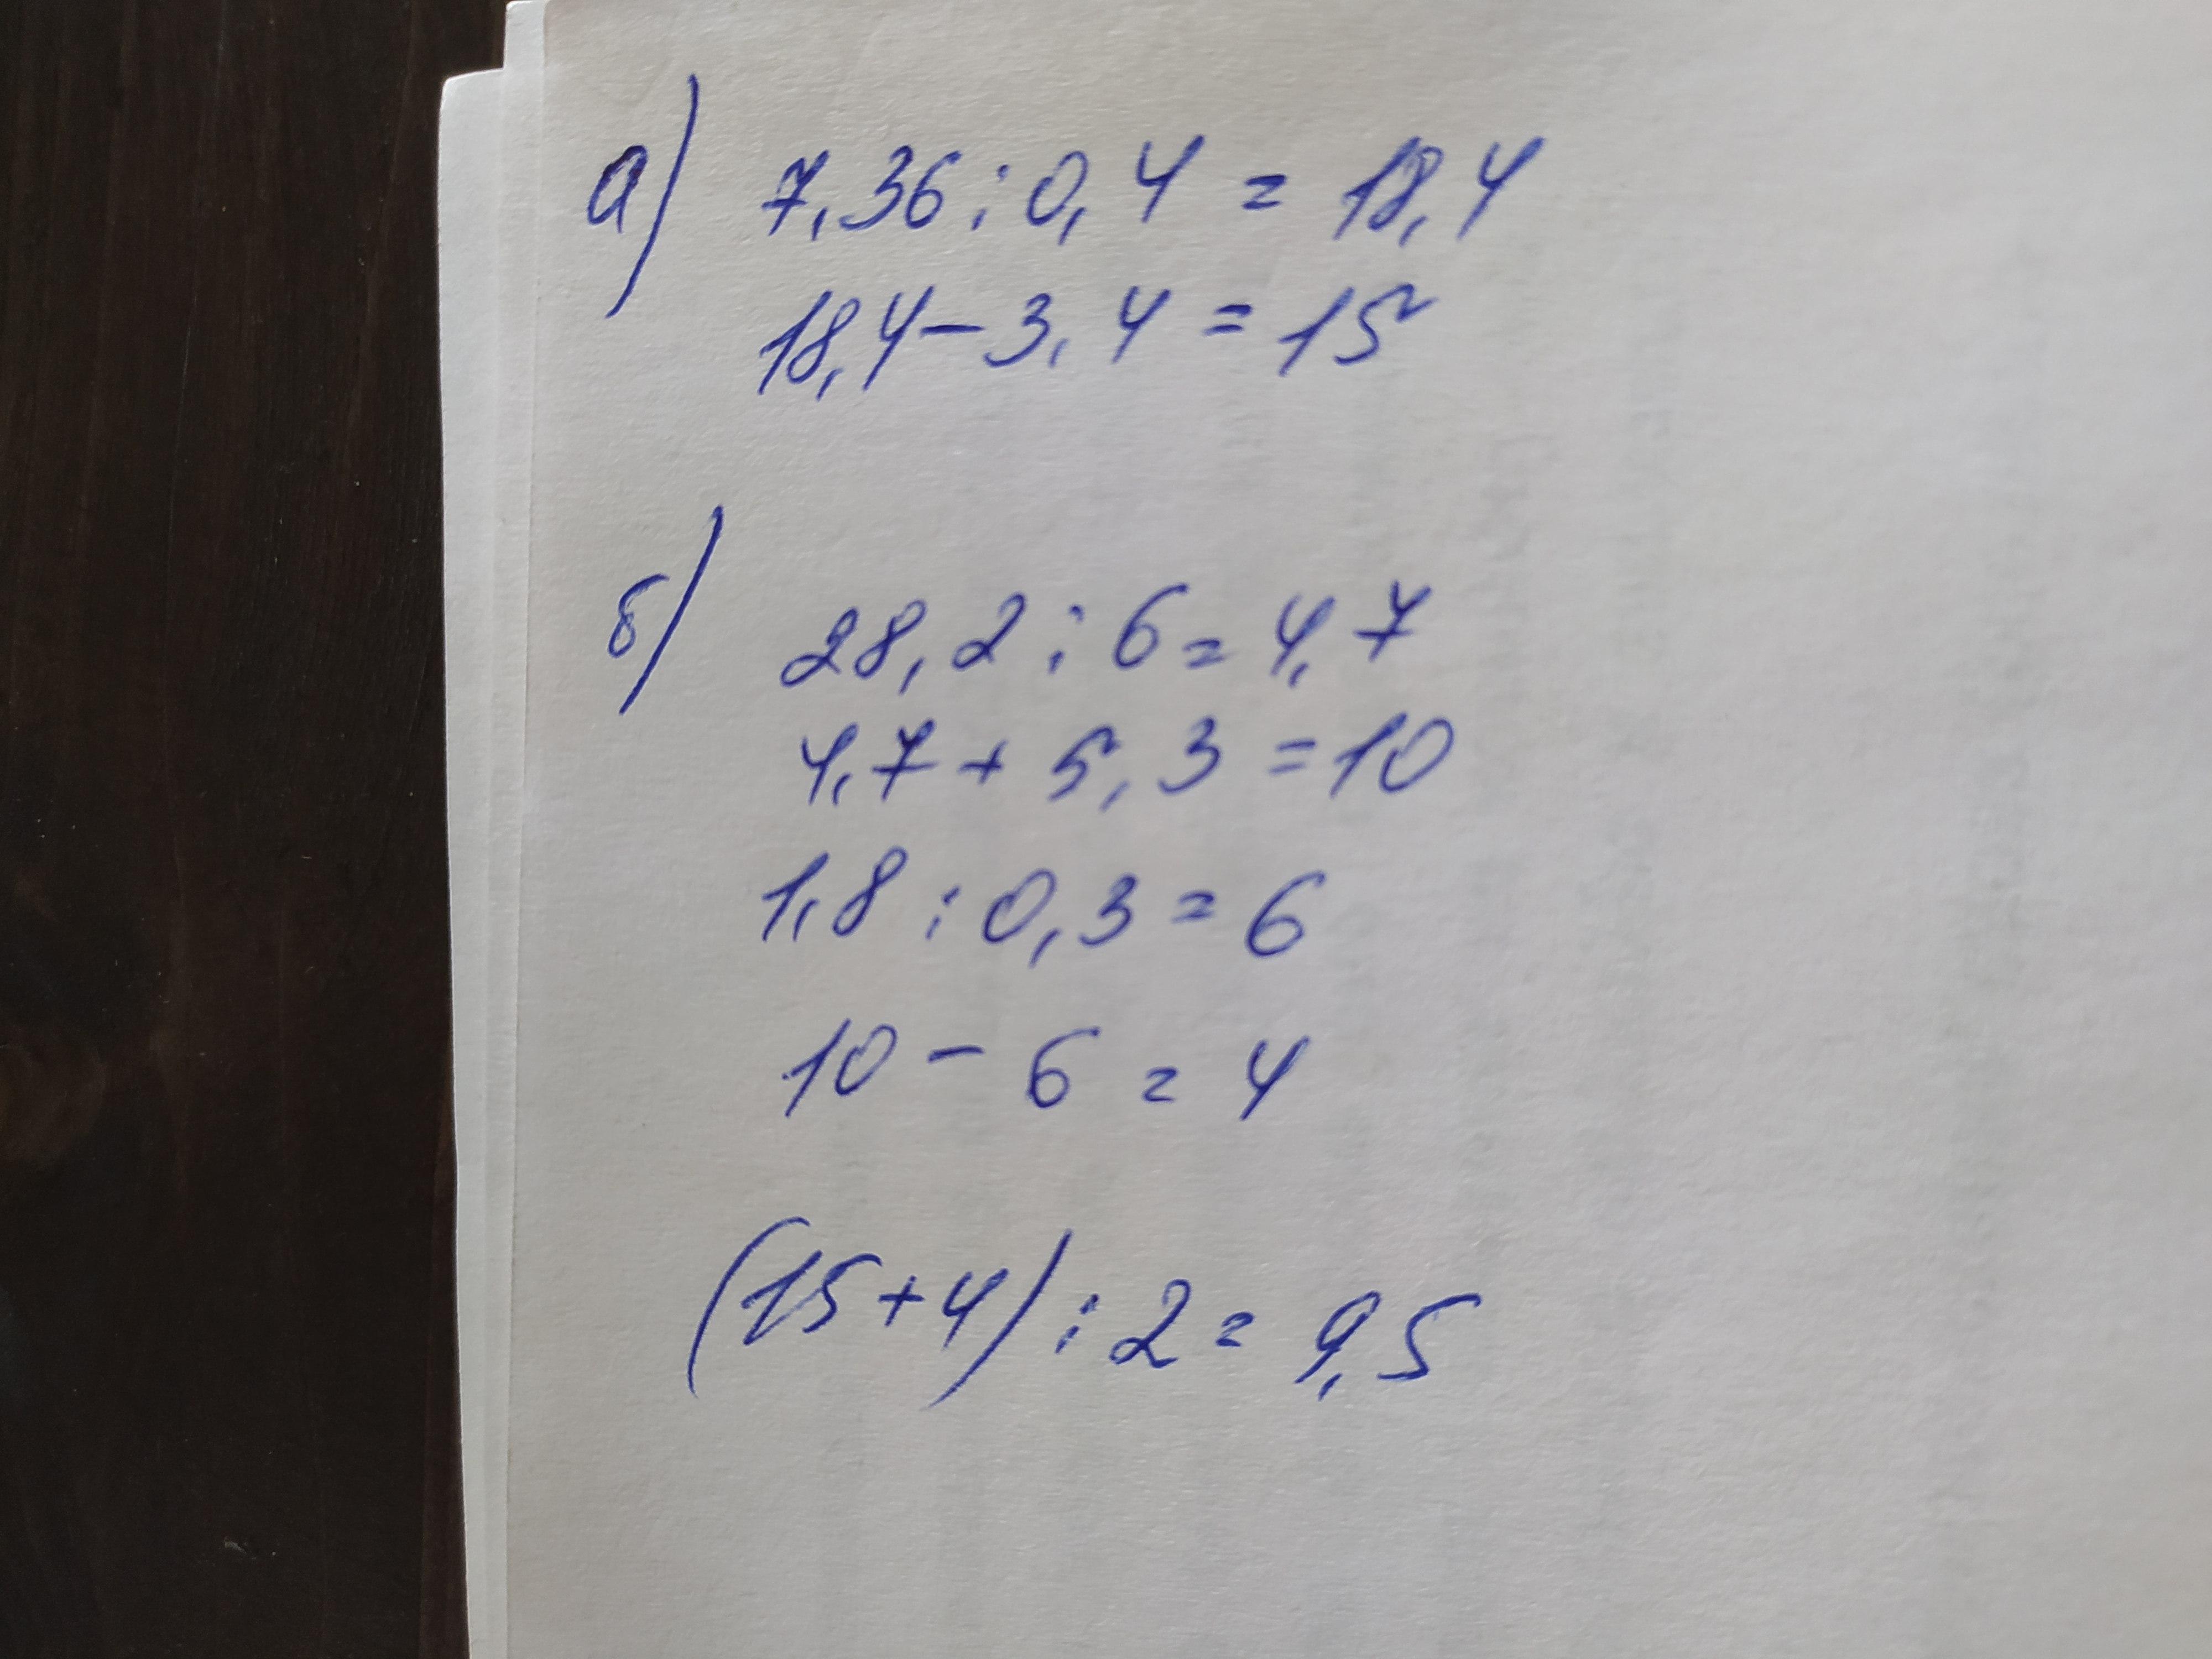 а) 7,36 : 0,4 = 18,4
18,4 - 3,4 = 15
б) 28,2 : 6 = 4,7
4,7 + 5,3 = 10
1,8 : 0,3 = 6
10 - 6 = 4
(15 + 4) : 2 = 9,5